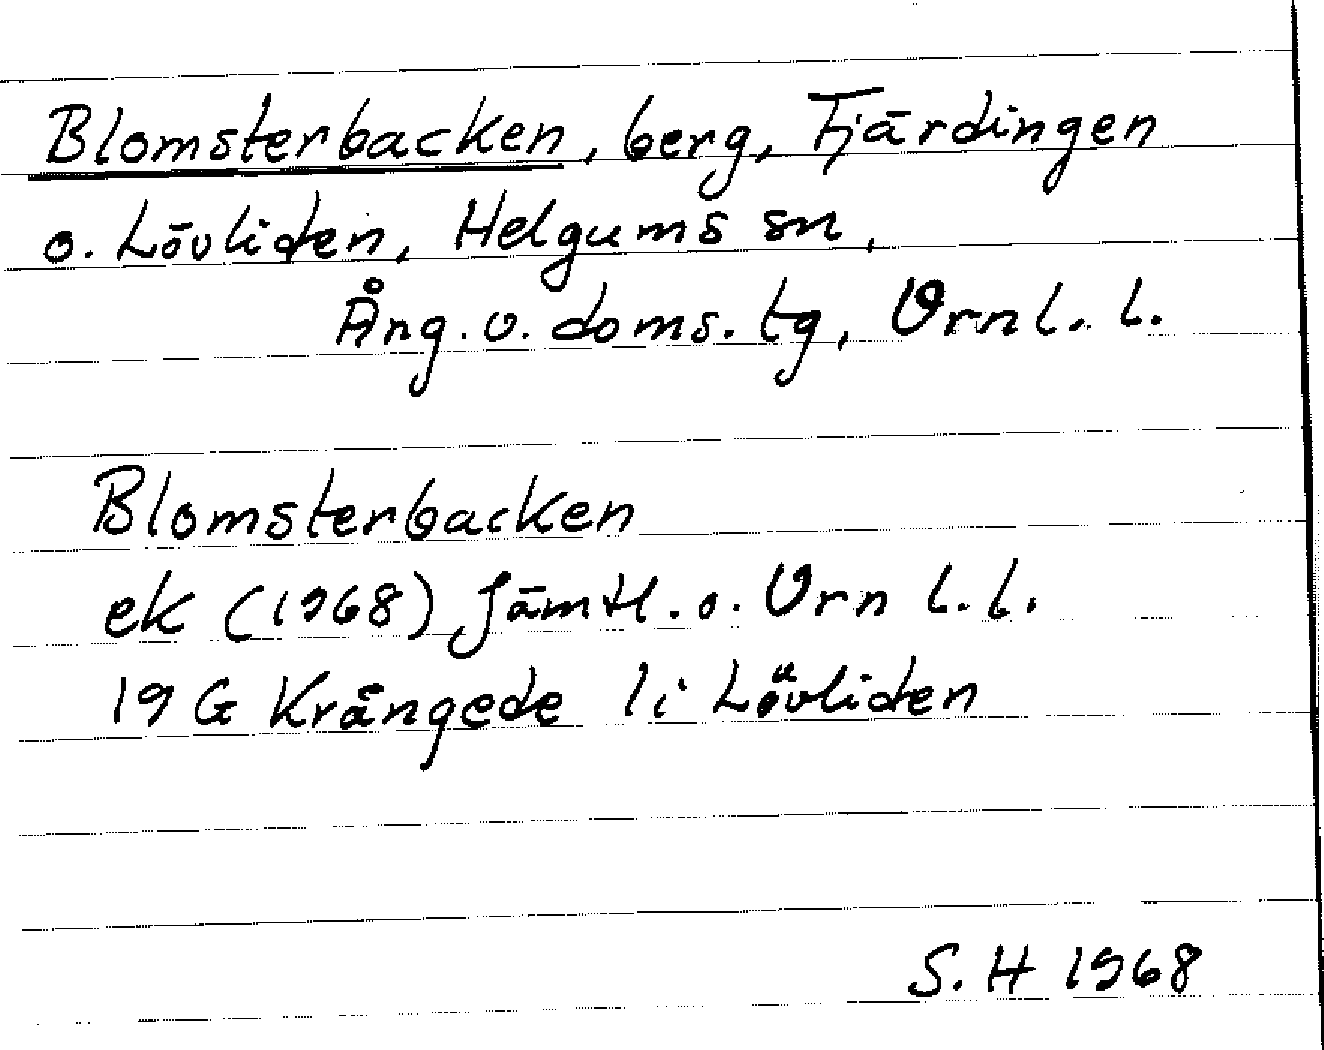 Blomsterbacken, berg, Fjärdingen
o. Lövliden, Helgums sn,
Ång. v. doms. tg, Vrnl. l.
Blomsterbacken
ek (1968) Jämtl. o. Vrn l. l.
19 G Krångede li Lövliden
S. H 1968